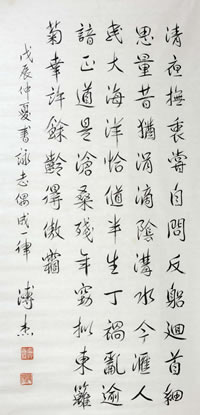 清夜撫衷嘗自問反躬迴首細
思量昔猶涓滴陰溝水今滙人
民大海洋恰値半生丁禍亂逾
諳正道是滄桑殘年竊擬東籬
菊幸許餘齡得傲霜
戊辰仲夏書詠志偶成一律
溥杰